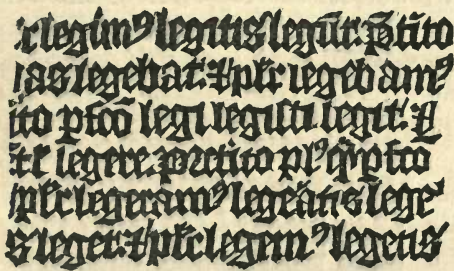 r legim⁹ legitis legūt. p̄tito
as legebat: ⁊ płr legebam⁹
ito pfcō legi legisti legit: ⁊
legere. prctito pl⁹q̄pfco
płr legeram⁹ legeātis lege
s leget: ⁊ płr legem⁹ legetis